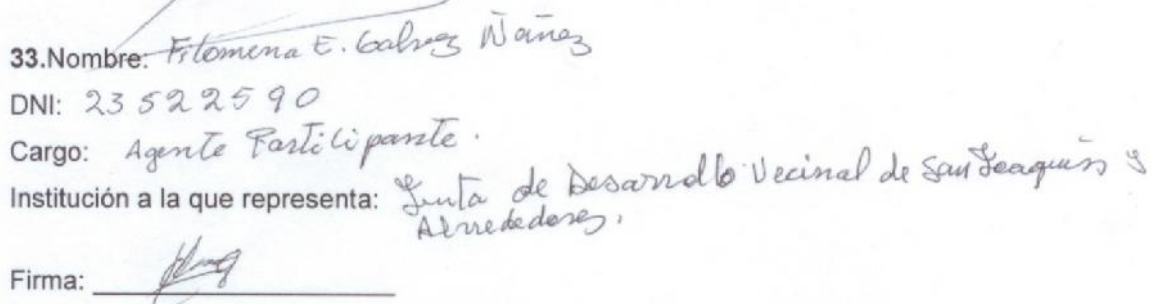 33.Nombre: Filomena E. Galvez Ñañez
DNI: 23522590
Cargo: Agente Partilipante.
Institución a la que representa: Junta de Desarrollo Vecinal de San Joaquin y
Alrrededores.
Firma: